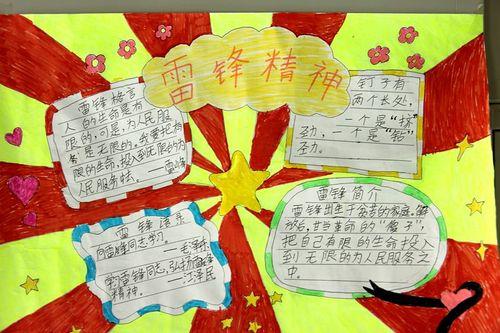 雷锋精神
雷锋格言
人的生命是有
限的，可是，为人民服
务是无限的，我要把有
限的生命，投入到无限的为
人民服务去。——雷锋
钉子有
两个长处，
一个是“挤”
劲，一个是“钻”
劲。
雷锋
向雷锋同志学习。
——毛泽东
学雷锋同志，弘扬雷锋
精神。——江泽民
雷锋简介
雷锋出生于贫苦的家庭，解
放后，甘当革命的“螺丝
把自己有限的生命投入
到无限的为人民服务之
中。